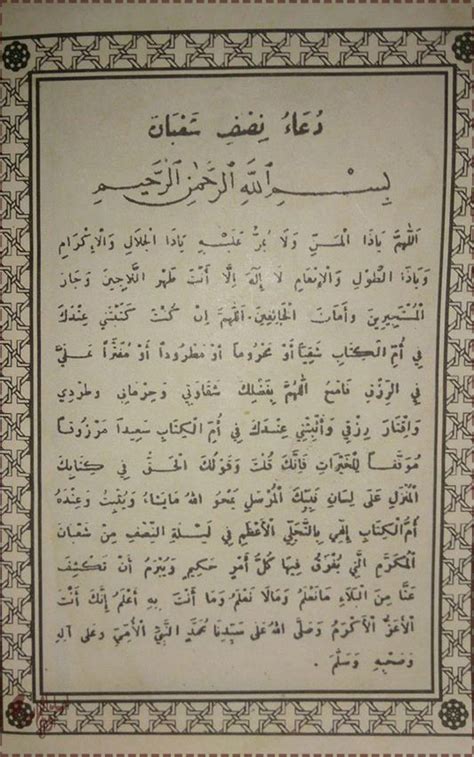 دُعَاءُ نِصْفِ شَعْبَان
بِسْمِ اللهِ الرَّحْمٰنِ الرَّحِيمِ
اَللّٰهُمَّ يَاذَا الْمَنِّ وَلَا يُمَنُّ عَلَيْهِ يَاذَا الْجَلَالِ وَالْإِكْرَامِ
وَيَاذَا الطَّوْلِ وَالْإِنْعَامِ لَا إِلَهَ إِلَّا أَنْتَ ظَهْرَ اللَّاجِينَ وَجَارَ
الْمُسْتَجِيرِينَ وَأَمَانَ الْخَائِفِينَ. اَللّٰهُمَّ إِنْ كُنْتَ كَتَبْتَنِي عِنْدَكَ
فِي أُمِّ الْكِتَابِ شَقِيًّا أَوْ مَحْرُومًا أَوْ مَطْرُودًا أَوْ مُقَتَّرًا عَلَيَّ
فِي الرِّزْقِ فَامْحُ اللّٰهُمَّ بِفَضْلِكَ شَقَاوَتِي وَحِرْمَانِي وَطَرْدِي
وَإِقْتَارَ رِزْقِي وَأَثْبِتْنِي عِنْدَكَ فِي أُمِّ الْكِتَابِ سَعِيدًا مَرْزُوقًا
مُوَفَّقًا لِلْخَيْرَاتِ فَإِنَّكَ قُلْتَ وَقَوْلُكَ الْحَقُّ فِي كِتَابِكَ
الْمُنْزَلِ عَلَى لِسَانِ نَبِيِّكَ الْمُرْسَلِ يَمْحُو اللهُ مَا يَشَاءُ وَيُثْبِتُ وَعِنْدَهُ
أُمُّ الْكِتَابِ إِلٰهِي بِالتَّجَلِّي الْأَعْظَمِ فِي لَيْلَةِ النِّصْفِ مِنْ شَعْبَانَ
الْمُكَرَّمِ الَّتِي يُفْرَقُ فِيهَا كُلُّ أَمْرٍ حَكِيمٍ وَيُبْرَمُ أَنْ تَكْشِفَ
عَنَّا مِنَ الْبَلَاءِ مَا نَعْلَمُ وَمَا لَا نَعْلَمُ وَمَا أَنْتَ بِهِ أَعْلَمُ إِنَّكَ أَنْتَ
الْأَعَزُّ الْأَكْرَمُ وَصَلَّى اللهُ عَلَى سَيِّدِنَا مُحَمَّدٍ النَّبِيِّ الْأُمِّيِّ وَعَلَى آلِهِ
وَصَحْبِهِ وَسَلَّمَ .